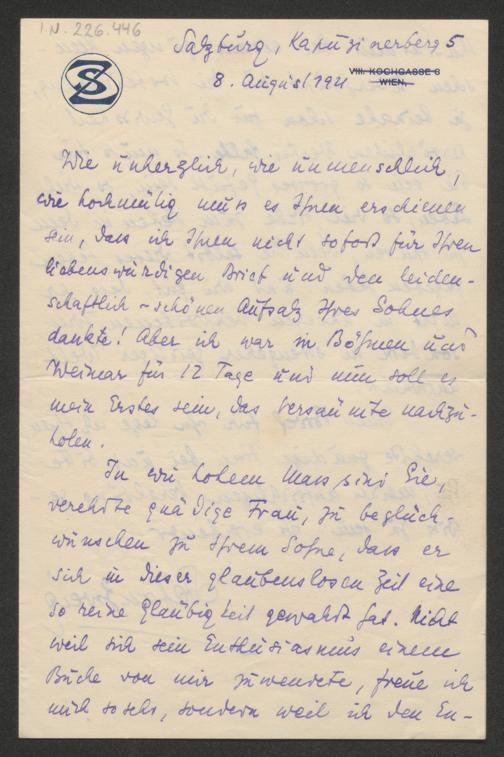 I.N. 226.446
Salzburg, Kapuzinerberg 5
SZ
VIII. KOCHGASSE 8
WIEN,
8. August 1921
Wie unherzlich, wie unmenschlich,
wie hochmütig muss es Ihnen erschienen
sein, dass ich Ihnen nicht sofort für Ihren
liebenswürdigen Brief und den leiden-
schaftlich-schönen Aufsatz Ihres Sohnes
dankte! Aber ich war in Böhmen und
Weimar für 12 Tage und nun soll es
mein Erstes sein, das Versäumte nachzu-
holen.
In wie hohem Mass sind Sie,
verehrte gnädige Frau, zu beglück-
wünschen zu Ihrem Sohne, dass er
sich in dieser glaubenslosen Zeit eine
so reine Gläubigkeit gewahrt hat. Nicht
weil sich sein Enthusiasmus einem
Buche von mir zuwendete, freue ich
mich so sehr, sondern weil ich den En-